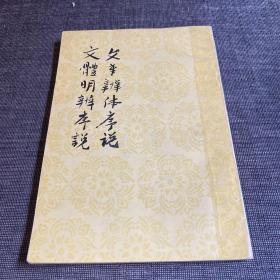 文章辨体序说
文體明辨序說